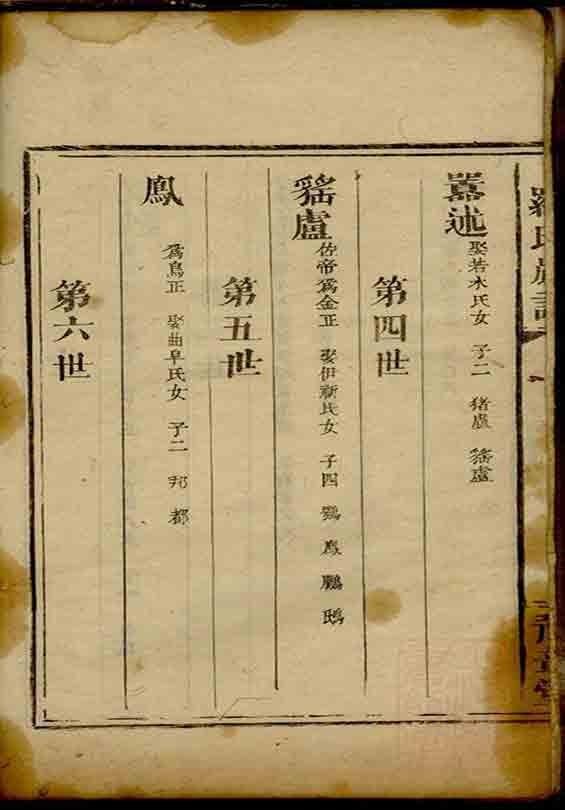 羅氏族譜
囂述 娶若水氏女 子二 猪盧 䍃盧
第四世
䍃盧 佐帝爲金正 娶伊新氏女 子四 鸚 鳳 鵬 鵄
第五世
鳳 爲鳥正 娶曲阜氏女 子二 邦 都
第六世